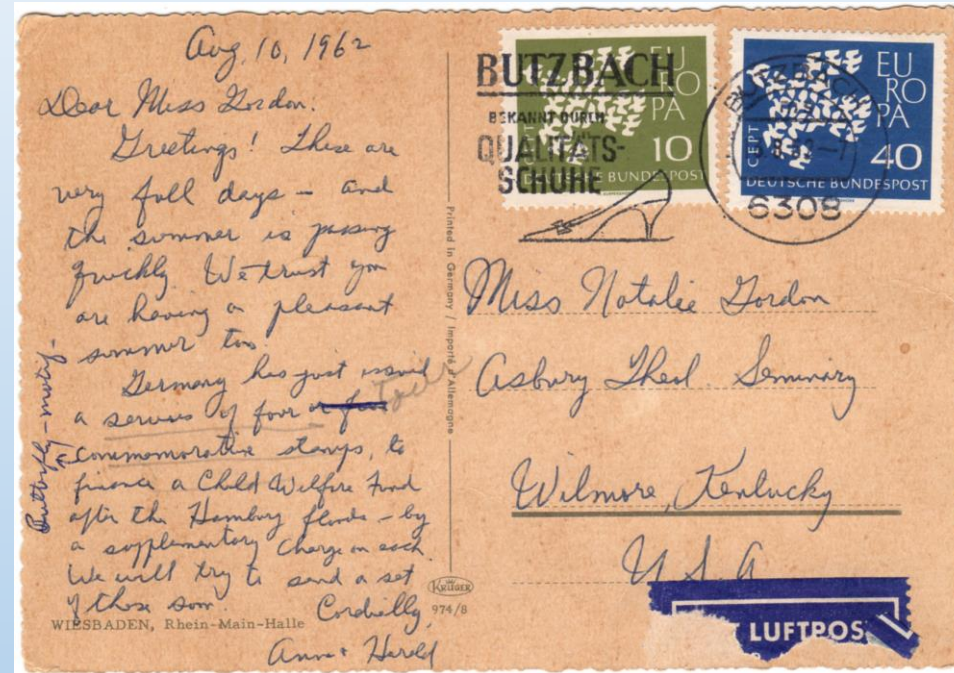 Aug. 10, 1962
Dear Miss Gordon.
Greetings! These are
very full days – and
the summer is passing
quickly. We trust you
are having a pleasant
summer too.
Germany has just issued
a series of four or four
commemorative stamps, to
finance a Child Welfare Fund
after the Hamburg floods – by
a supplementary charge on each.
We will try to send a set
of those soon.
Cordially,
Anna & Harold
Butterfly-motif-
WIESBADEN, Rhein-Main-Halle
Printed in Germany / Importé d'Allemagne
KRÜGER
974/8
BUTZBACH
BEKANNT DURCH
QUALITÄTS-
SCHUHE
EU
RO
PA
CEPT
10
DEUTSCHE BUNDESPOST
BUTZBACH
6308
EU
RO
PA
CEPT
40
DEUTSCHE BUNDESPOST
Miss Natalie Gordon
Asbury Theol. Seminary
Wilmore, Kentucky
U.S.A.
LUFTPOS